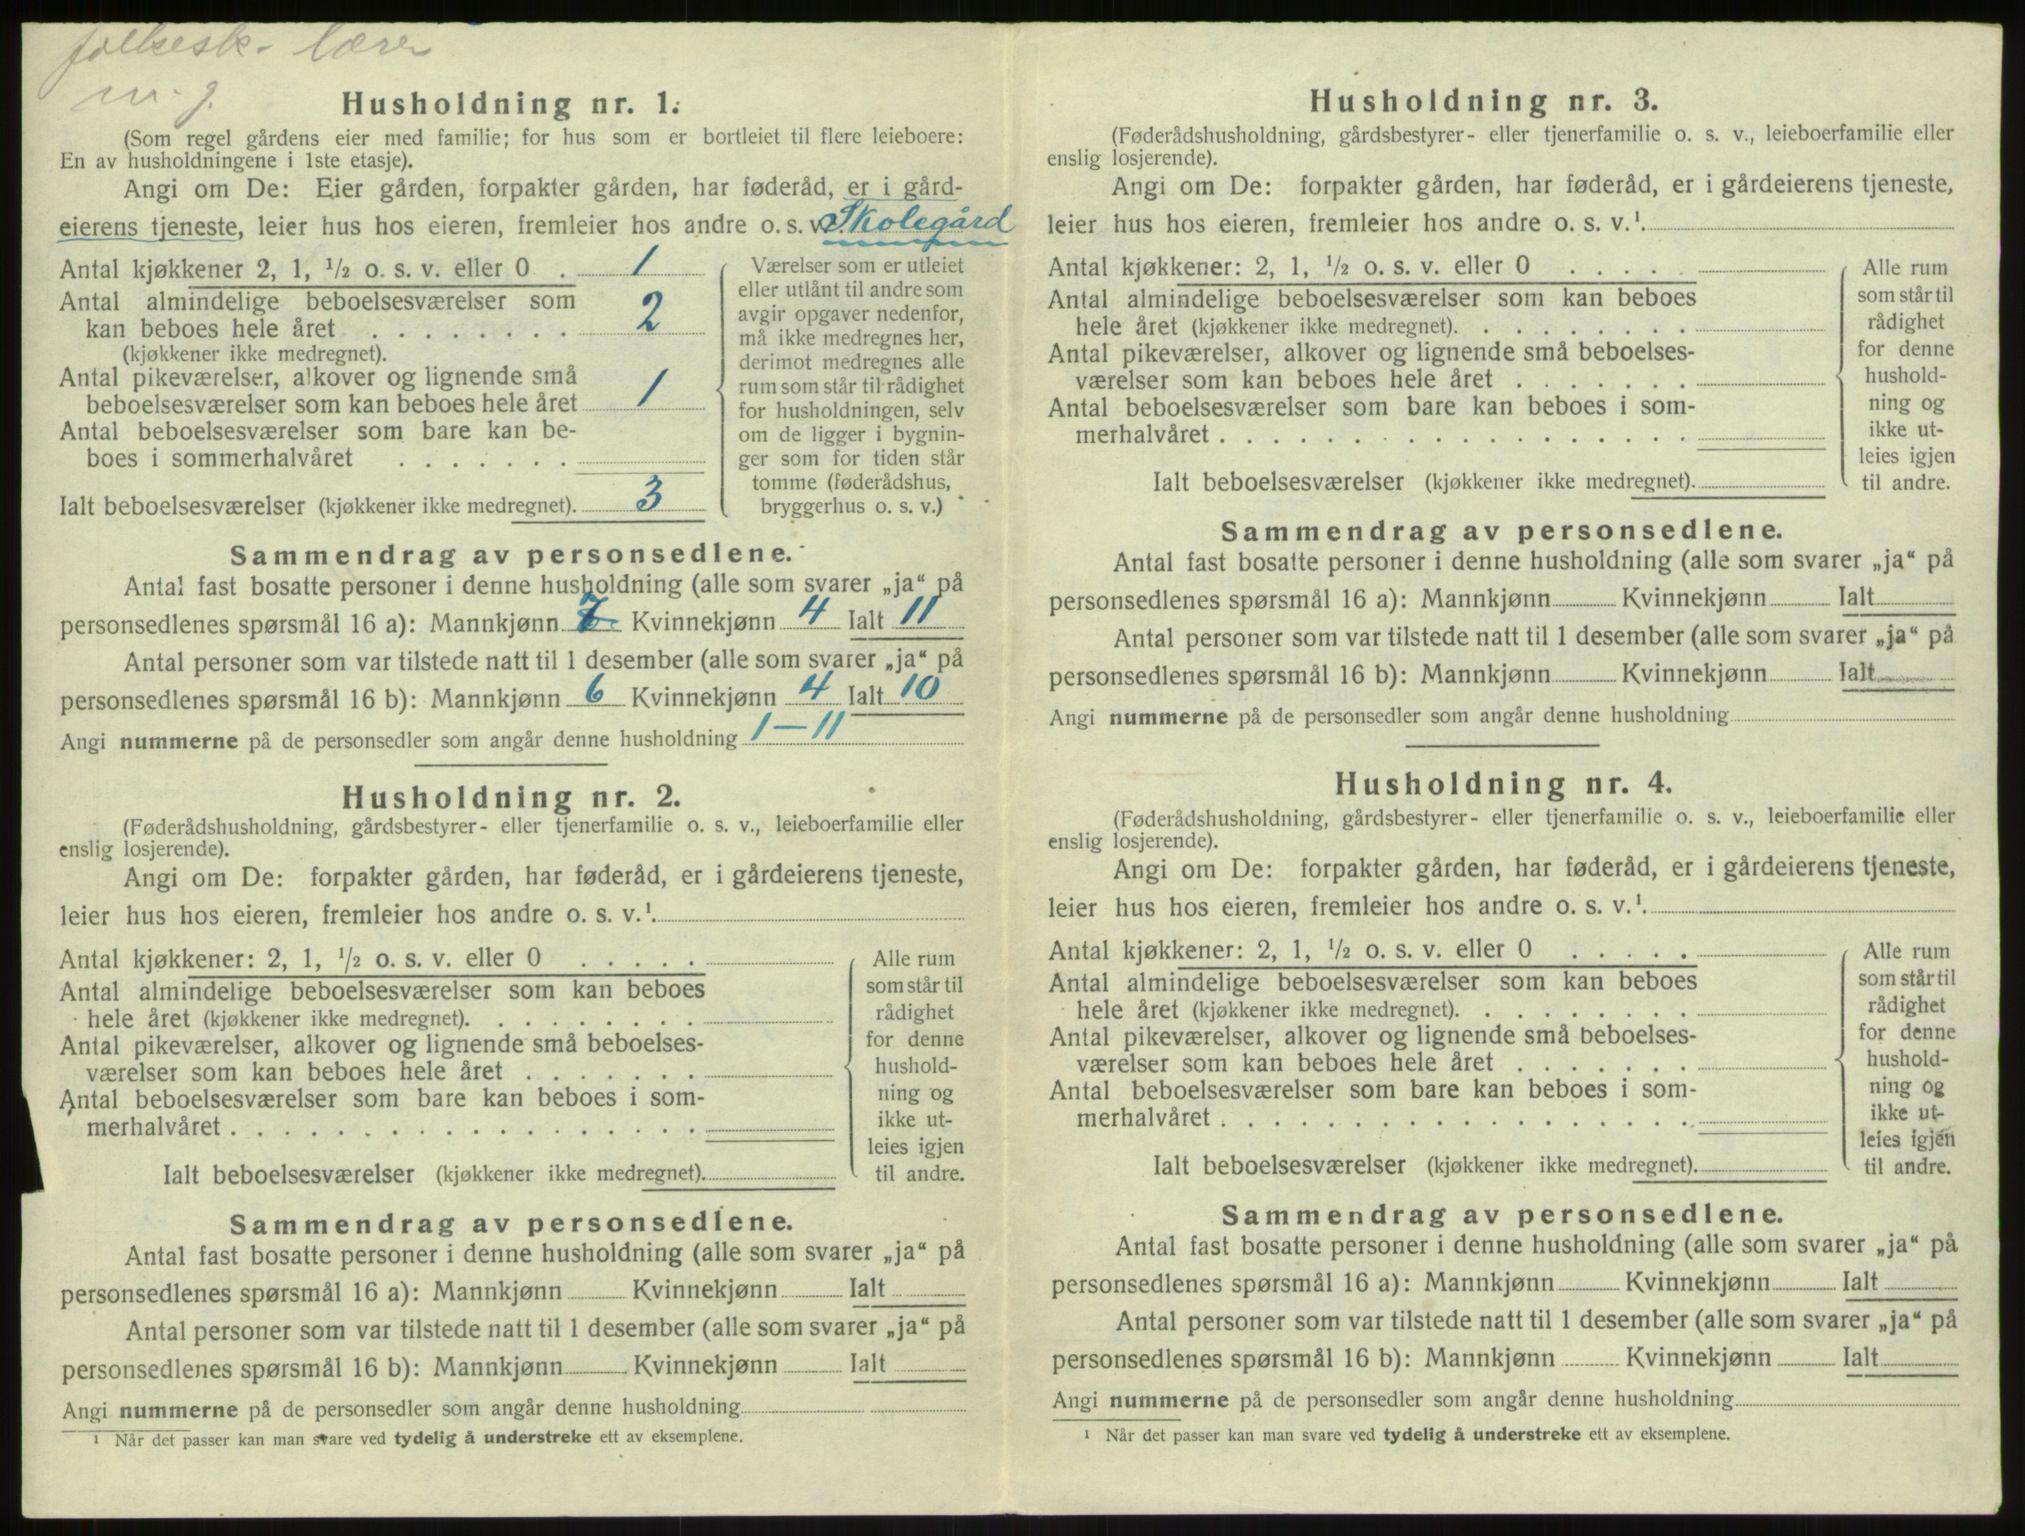 folkesk. lærer
m. g.
Husholdning nr. 1.
(Som regel gårdens eier med familie; for hus som er bortleiet til flere leieboere:
En av husholdningene i 1ste etasje).
Angi om De: Eier gården, forpakter gården, har føderåd, er i gård-
eierens tjeneste, leier hus hos eieren, fremleier hos andre o. s. v.¹ Skolegård
Antal kjøkkener 2, 1, ½ o. s. v. eller 0 . 1
Antal almindelige beboelsesværelser som
kan beboes hele året . . . . . . . . 2
(kjøkkener ikke medregnet).
Antal pikeværelser, alkover og lignende små
beboelsesværelser som kan beboes hele året 1
Antal beboelsesværelser som bare kan be-
boes i sommerhalvåret . . . . . . .
Ialt beboelsesværelser (kjøkkener ikke medregnet). 3
Værelser som er utleiet
eller utlånt til andre som
avgir opgaver nedenfor,
må ikke medregnes her,
derimot medregnes alle
rum som står til rådighet
for husholdningen, selv
om de ligger i bygnin-
ger som for tiden står
tomme (føderådshus,
bryggerhus o. s. v.)
Sammendrag av personsedlene.
Antal fast bosatte personer i denne husholdning (alle som svarer „ja“ på
personsedlenes spørsmål 16 a): Mannkjønn 7 Kvinnekjønn 4 Ialt 11
Antal personer som var tilstede natt til 1 desember (alle som svarer „ja“ på
personsedlenes spørsmål 16 b): Mannkjønn 6 Kvinnekjønn 4 Ialt 10
Angi nummerne på de personsedler som angår denne husholdning 1-11
Husholdning nr. 2.
(Føderådshusholdning, gårdsbestyrer- eller tjenerfamilie o. s. v., leieboerfamilie eller
enslig losjerende).
Angi om De: forpakter gården, har føderåd, er i gårdeierens tjeneste,
leier hus hos eieren, fremleier hos andre o. s. v.¹.
Antal kjøkkener: 2, 1, ½ o. s. v. eller 0 . . . . .
Antal almindelige beboelsesværelser som kan beboes
hele året (kjøkkener ikke medregnet). . . . . . . . .
Antal pikeværelser, alkover og lignende små beboelses-
værelser som kan beboes hele året . . . . . . .
Antal beboelsesværelser som bare kan beboes i som-
merhalvåret . . . . . . . . . . . . . . . . . .
Ialt beboelsesværelser (kjøkkener ikke medregnet).
Alle rum
som står til
rådighet
for denne
hushold-
ning og
ikke ut-
leies igjen
til andre.
Sammendrag av personsedlene.
Antal fast bosatte personer i denne husholdning (alle som svarer „ja“ på
personsedlenes spørsmål 16 a): Mannkjønn Kvinnekjønn Ialt
Antal personer som var tilstede natt til 1 desember (alle som svarer „ja“ på
personsedlenes spørsmål 16 b): Mannkjønn Kvinnekjønn Ialt
Angi nummerne på de personsedler som angår denne husholdning
¹ Når det passer kan man svare ved tydelig å understreke ett av eksemplene.
Husholdning nr. 3.
(Føderådshusholdning, gårdsbestyrer- eller tjenerfamilie o. s. v., leieboerfamilie eller
enslig losjerende).
Angi om De: forpakter gården, har føderåd, er i gårdeierens tjeneste,
leier hus hos eieren, fremleier hos andre o. s. v.¹.
Antal kjøkkener: 2, 1, ½ o. s. v. eller 0 . . . . .
Antal almindelige beboelsesværelser som kan beboes
hele året (kjøkkener ikke medregnet). . . . . . . . .
Antal pikeværelser, alkover og lignende små beboelses-
værelser som kan beboes hele året . . . . . . .
Antal beboelsesværelser som bare kan beboes i som-
merhalvåret . . . . . . . . . . . . . . . . . .
Ialt beboelsesværelser (kjøkkener ikke medregnet).
Alle rum
som står til
rådighet
for denne
hushold-
ning og
ikke ut-
leies igjen
til andre.
Sammendrag av personsedlene.
Antal fast bosatte personer i denne husholdning (alle som svarer „ja“ på
personsedlenes spørsmål 16 a): Mannkjønn Kvinnekjønn Ialt
Antal personer som var tilstede natt til 1 desember (alle som svarer „ja“ på
personsedlenes spørsmål 16 b): Mannkjønn Kvinnekjønn Ialt
Angi nummerne på de personsedler som angår denne husholdning
Husholdning nr. 4.
(Føderådshusholdning, gårdsbestyrer- eller tjenerfamilie o. s. v., leieboerfamilie eller
enslig losjerende).
Angi om De: forpakter gården, har føderåd, er i gårdeierens tjeneste,
leier hus hos eieren, fremleier hos andre o. s. v.¹.
Antal kjøkkener: 2, 1, ½ o. s. v. eller 0 . . . . .
Antal almindelige beboelsesværelser som kan beboes
hele året (kjøkkener ikke medregnet). . . . . . . . .
Antal pikeværelser, alkover og lignende små beboelses-
værelser som kan beboes hele året . . . . . . .
Antal beboelsesværelser som bare kan beboes i som-
merhalvåret . . . . . . . . . . . . . . . . . .
Ialt beboelsesværelser (kjøkkener ikke medregnet).
Alle rum
som står til
rådighet
for denne
hushold-
ning og
ikke ut-
leies igjen
til andre.
Sammendrag av personsedlene.
Antal fast bosatte personer i denne husholdning (alle som svarer „ja“ på
personsedlenes spørsmål 16 a): Mannkjønn Kvinnekjønn Ialt
Antal personer som var tilstede natt til 1 desember (alle som svarer „ja“ på
personsedlenes spørsmål 16 b): Mannkjønn Kvinnekjønn Ialt
Angi nummerne på de personsedler som angår denne husholdning
¹ Når det passer kan man svare ved tydelig å understreke ett av eksemplene.